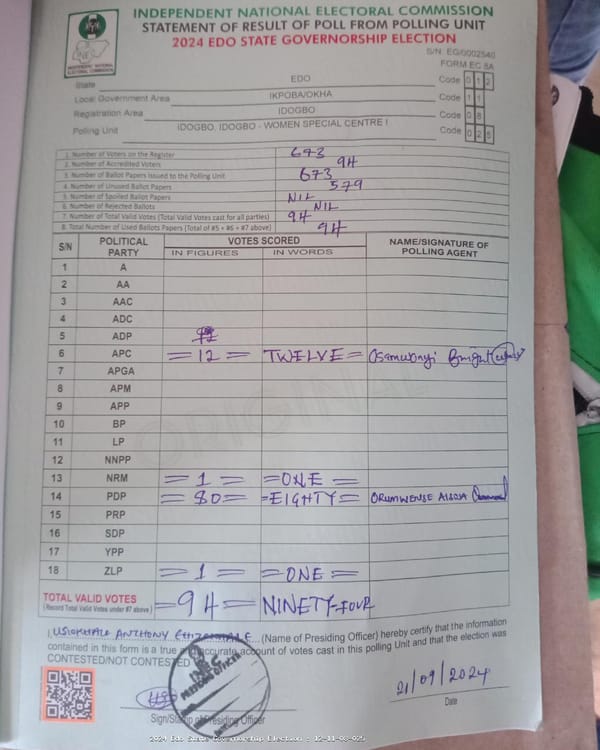 INDEPENDENT NATIONAL ELECTORAL COMMISSION
STATEMENT OF RESULT OF POLL FROM POLLING UNIT
2024 EDO STATE GOVERNORSHIP ELECTION
S/N: EG/0002540
FORM EC 8A
INDEPENDENT NATIONAL ELECTORAL COMMISSION
State EDO Code 0 1 2
Local Government Area IKPOBA/OKHA Code 1 1
Registration Area IDOGBO Code 0 8
Polling Unit IDOGBO, IDOGBO - WOMEN SPECIAL CENTRE I Code 0 2 5
1. Number of Voters on the Register 673
2. Number of Accredited Voters 94
3. Number of Ballot Papers Issued to the Polling Unit 673
4. Number of Unused Ballot Papers 579
5. Number of Spoiled Ballot Papers NIL
6. Number of Rejected Ballots NIL
7. Number of Total Valid Votes (Total Valid Votes cast for all parties) 94
8. Total Number of Used Ballots Papers (Total of #5 + #6 + #7 above) 94
S/N POLITICAL PARTY VOTES SCORED NAME/SIGNATURE OF POLLING AGENT
IN FIGURES IN WORDS
1 A
2 AA
3 AAC
4 ADC
5 ADP
6 APC = 12 = TWELVE = Osamwonyi Bright
7 APGA
8 APM
9 APP
10 BP
11 LP
12 NNPP
13 NRM = 1 = =ONE =
14 PDP = 80 = =EIGHTY=
15 PRP
16 SDP
17 YPP
18 ZLP = 1 = =ONE =
TOTAL VALID VOTES =94= NINETY-FOUR
(Record Total Valid Votes under #7 above)
I, ANTHONY (Name of Presiding Officer) hereby certify that the information
contained in this form is a true and accurate account of votes cast in this polling Unit and that the election was
CONTESTED/NOT CONTESTED
INEC
PRESIDING OFFICER
21/09/2024
Sign/Stamp of Presiding Officer Date
ORIGINAL
2024 Edo State Governorship Election - 12-11-08-025